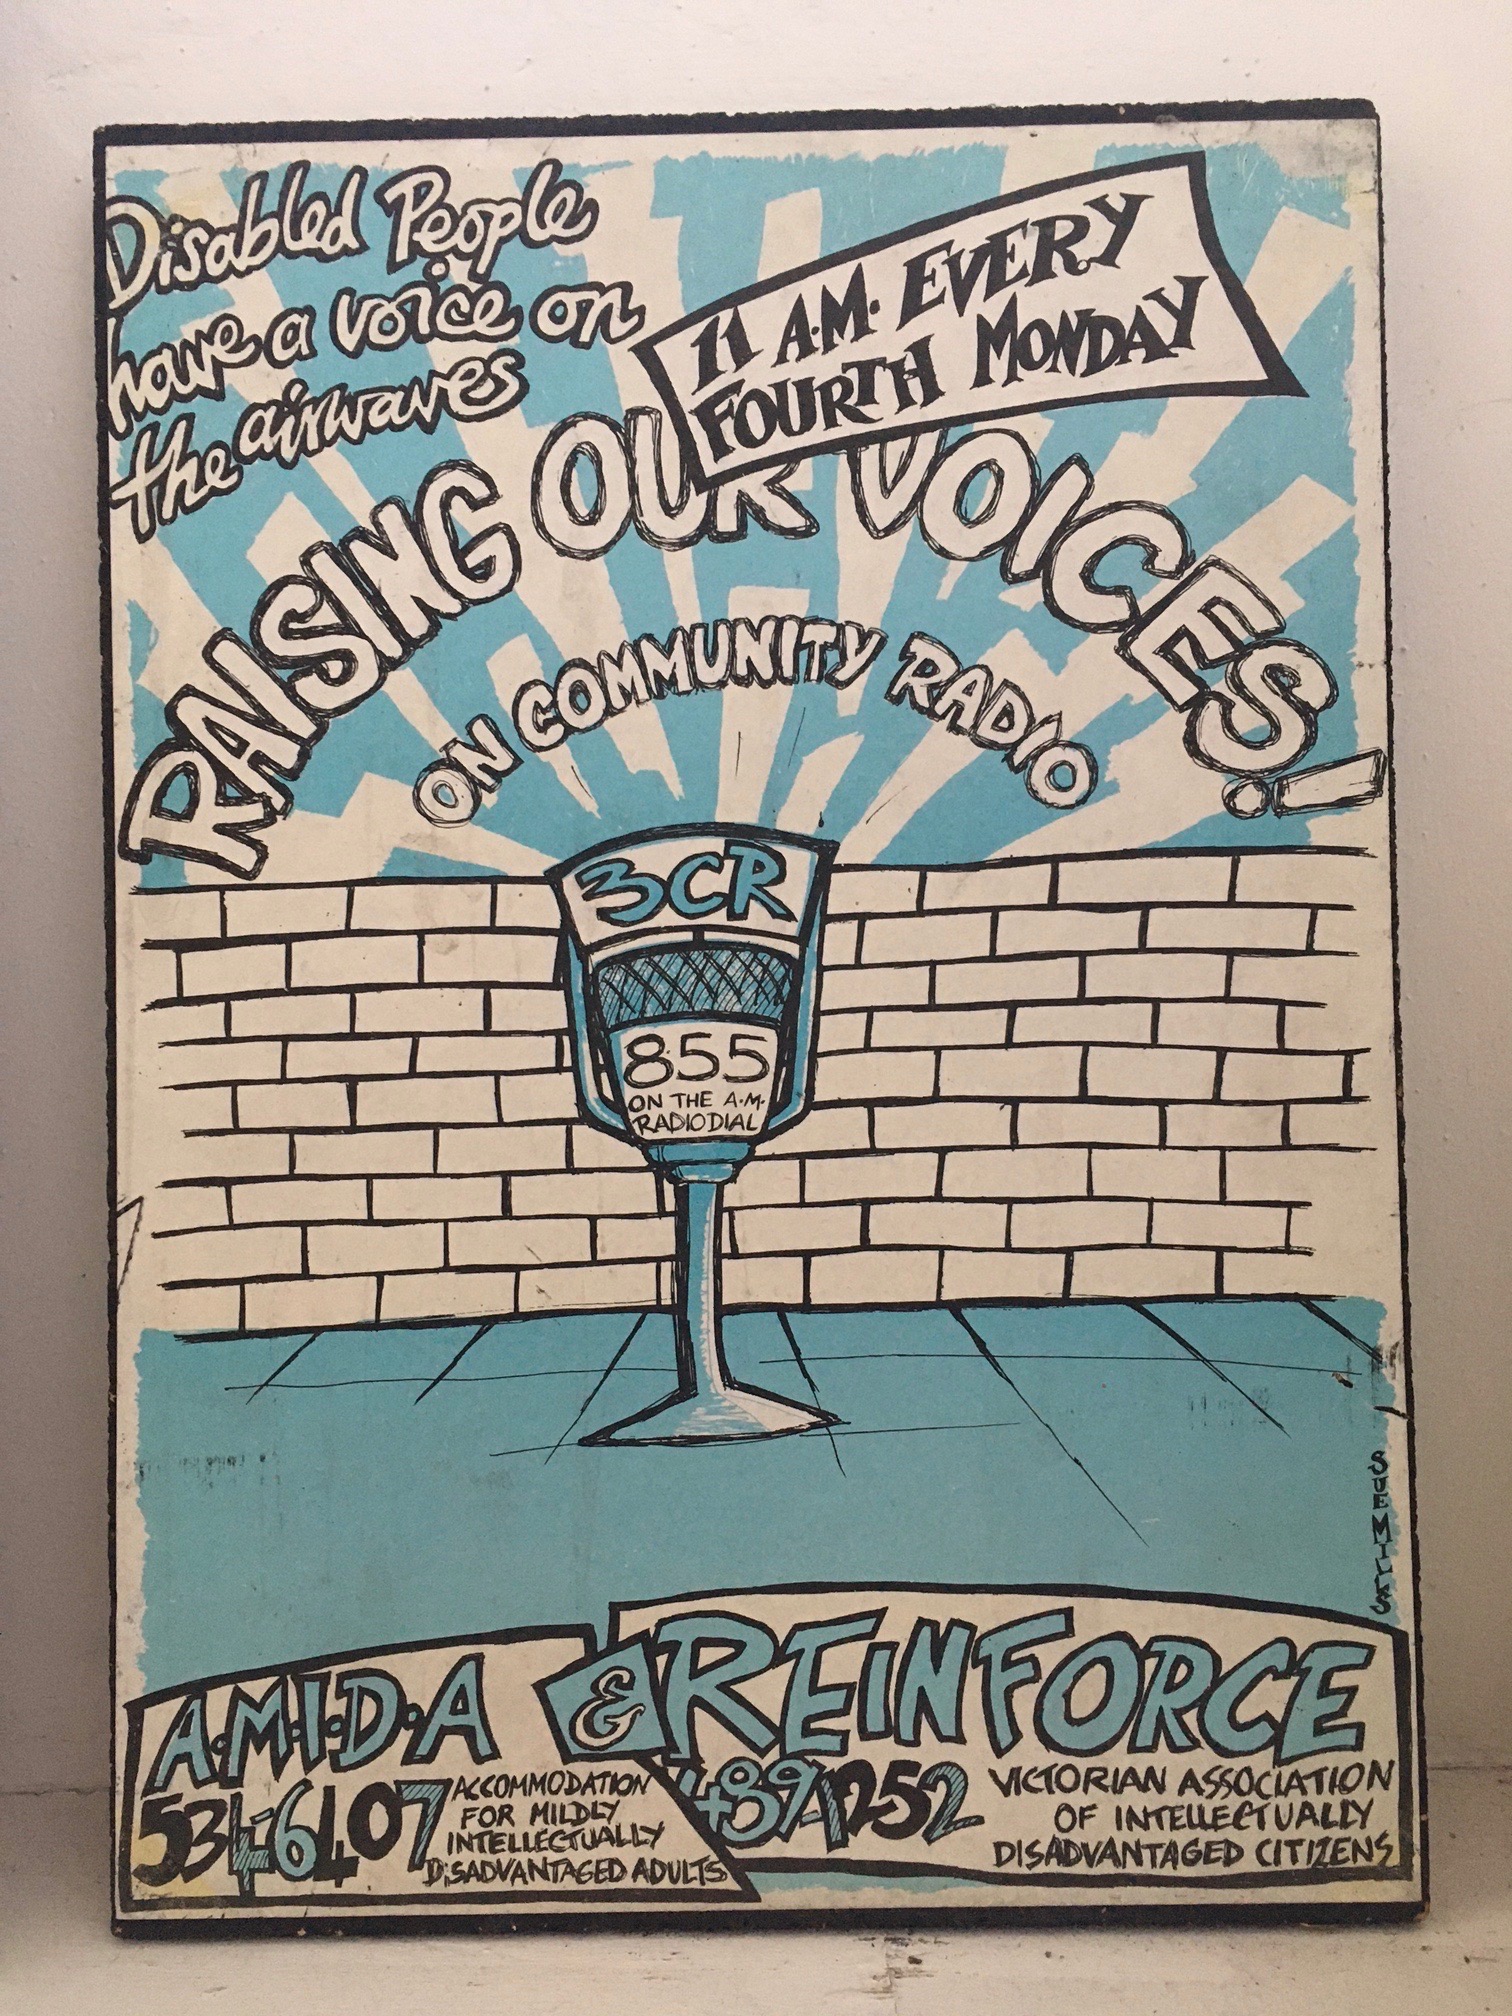 Disabled People
have a voice on
the airwaves
11 A.M. EVERY
FOURTH MONDAY
RAISING OUR VOICES!
ON COMMUNITY RADIO
3CR
855
ON THE A.M.
RADIO DIAL
SUE MILLS
A.M.I.D.A & REINFORCE
534-6407
ACCOMMODATION
FOR MILDLY
INTELLECTUALLY
DISADVANTAGED ADULTS
4891252
VICTORIAN ASSOCIATION
OF INTELLECTUALLY
DISADVANTAGED CITIZENS